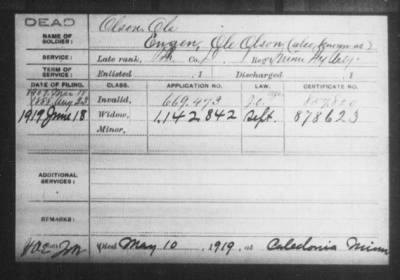 DEAD
Olson, Ole
NAME OF SOLDIER:
Eugen, Ole Olson, (also known as)
SERVICE:
Late rank, Co. Reg't Minn
TERM OF SERVICE:
Enlisted , 1 Discharged , 1
DATE OF FILING. CLASS. APPLICATION NO. LAW. CERTIFICATE NO.
1888 Aug 23 Invalid, 669,473
1919 June 18 Widow, 1,142,842 Sept. 878623
Minor,
ADDITIONAL SERVICES:
REMARKS:
died May 10 1919, at Caledonia Minn